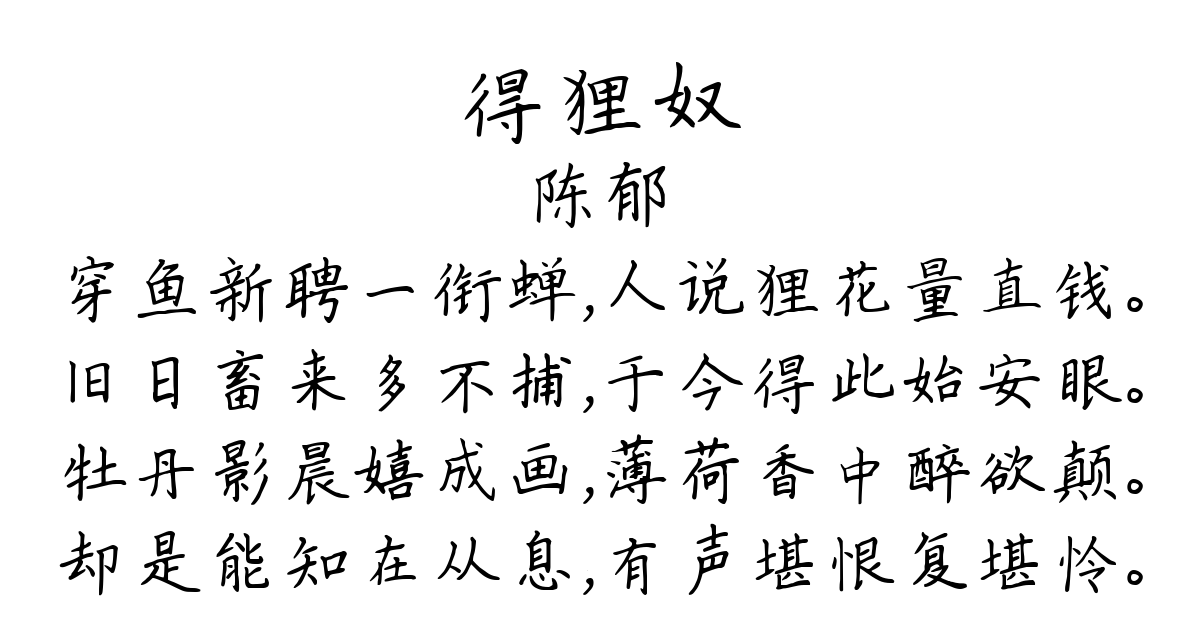 得狸奴
陈郁
穿鱼新聘一衔蝉,人说狸花量直钱。
旧日畜来多不捕,于今得此始安眠。
牡丹影晨嬉成画,薄荷香中醉欲颠。
却是能知在从息,有声堪恨复堪怜。